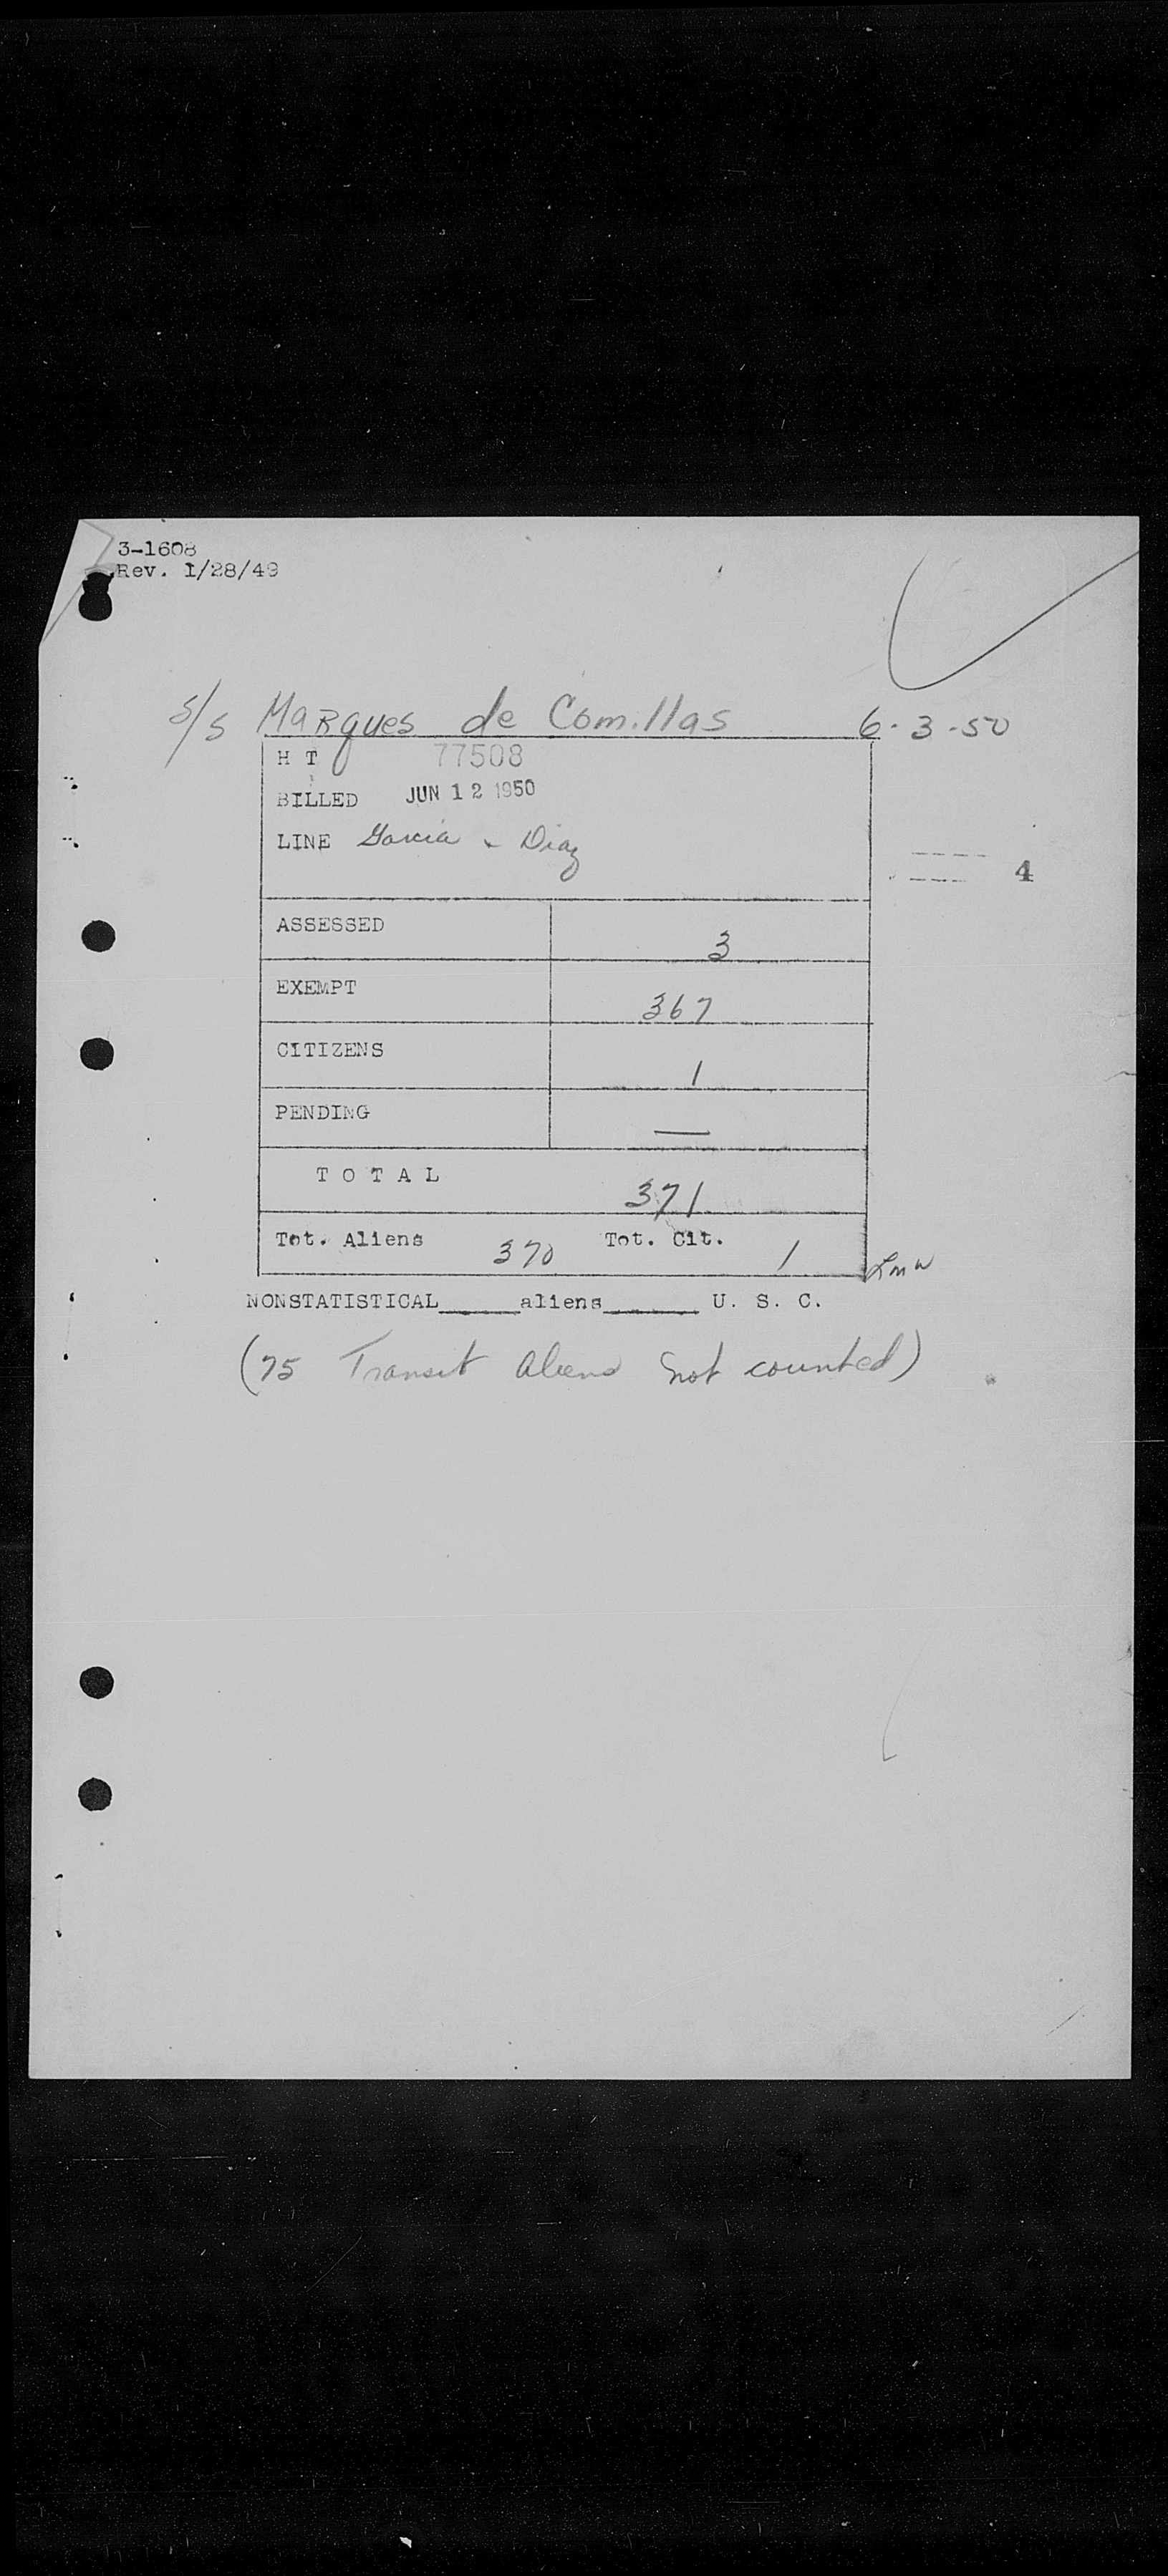 3-1608
Rev. 1/28/49
S/S Marques de Comillas 6-3-50
H T 77508
BILLED JUN 12 1950
LINE Garcia & Diaz
4
ASSESSED 3
EXEMPT 367
CITIZENS 1
PENDING —
TOTAL 371
Tot. Aliens 370 Tot. Cit. 1
LMW
NONSTATISTICAL_____aliens______ U. S. C.
(75 Transit aliens not counted)